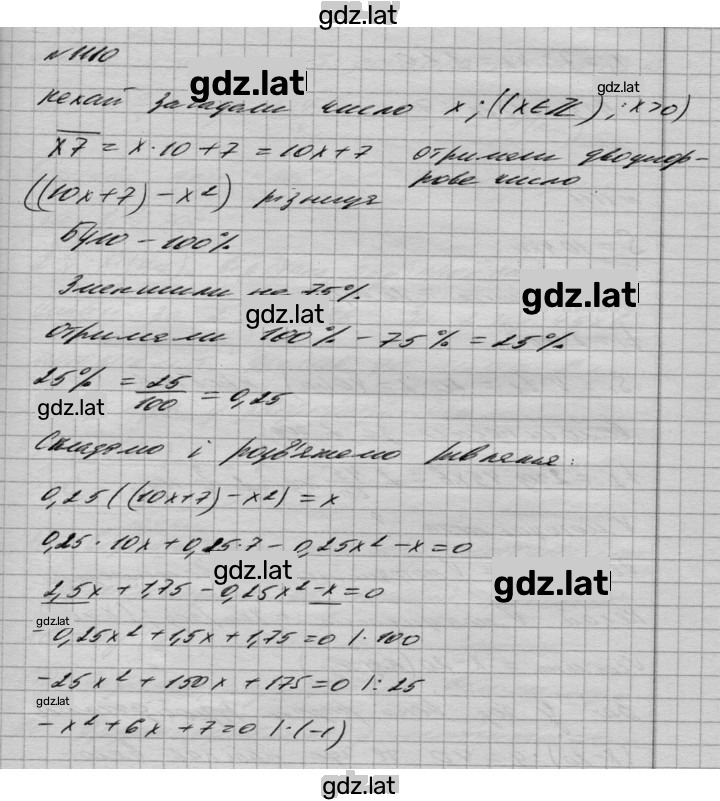 gdz.latl
№ 1110
gdz.latl
gdz.latl
нехай загадали число x; ((x∈Z); x>0)
x7 = x·10+7 = 10x+7 отримали двоциф-
рове число
((10x+7) - x²) різниця
Було - 100%
Зменшили на 75%
gdz.latl
gdz.latl
отримали 100% - 75% = 25%
25% = 25/100 = 0,25
gdz.latl
Складемо і розв'яжемо рівняння:
0,25((10x+7) - x²) = x
0,25·10x + 0,25·7 - 0,25x² - x = 0
gdz.latl
gdz.latl
2,5x + 1,75 - 0,25x² - x = 0
gdz.latl
- 0,25x² + 1,5x + 1,75 = 0 |·100
-25x² + 150x + 175 = 0 |: 25
gdz.latl
-x² + 6x + 7 = 0 |·(-1)
gdz.latl